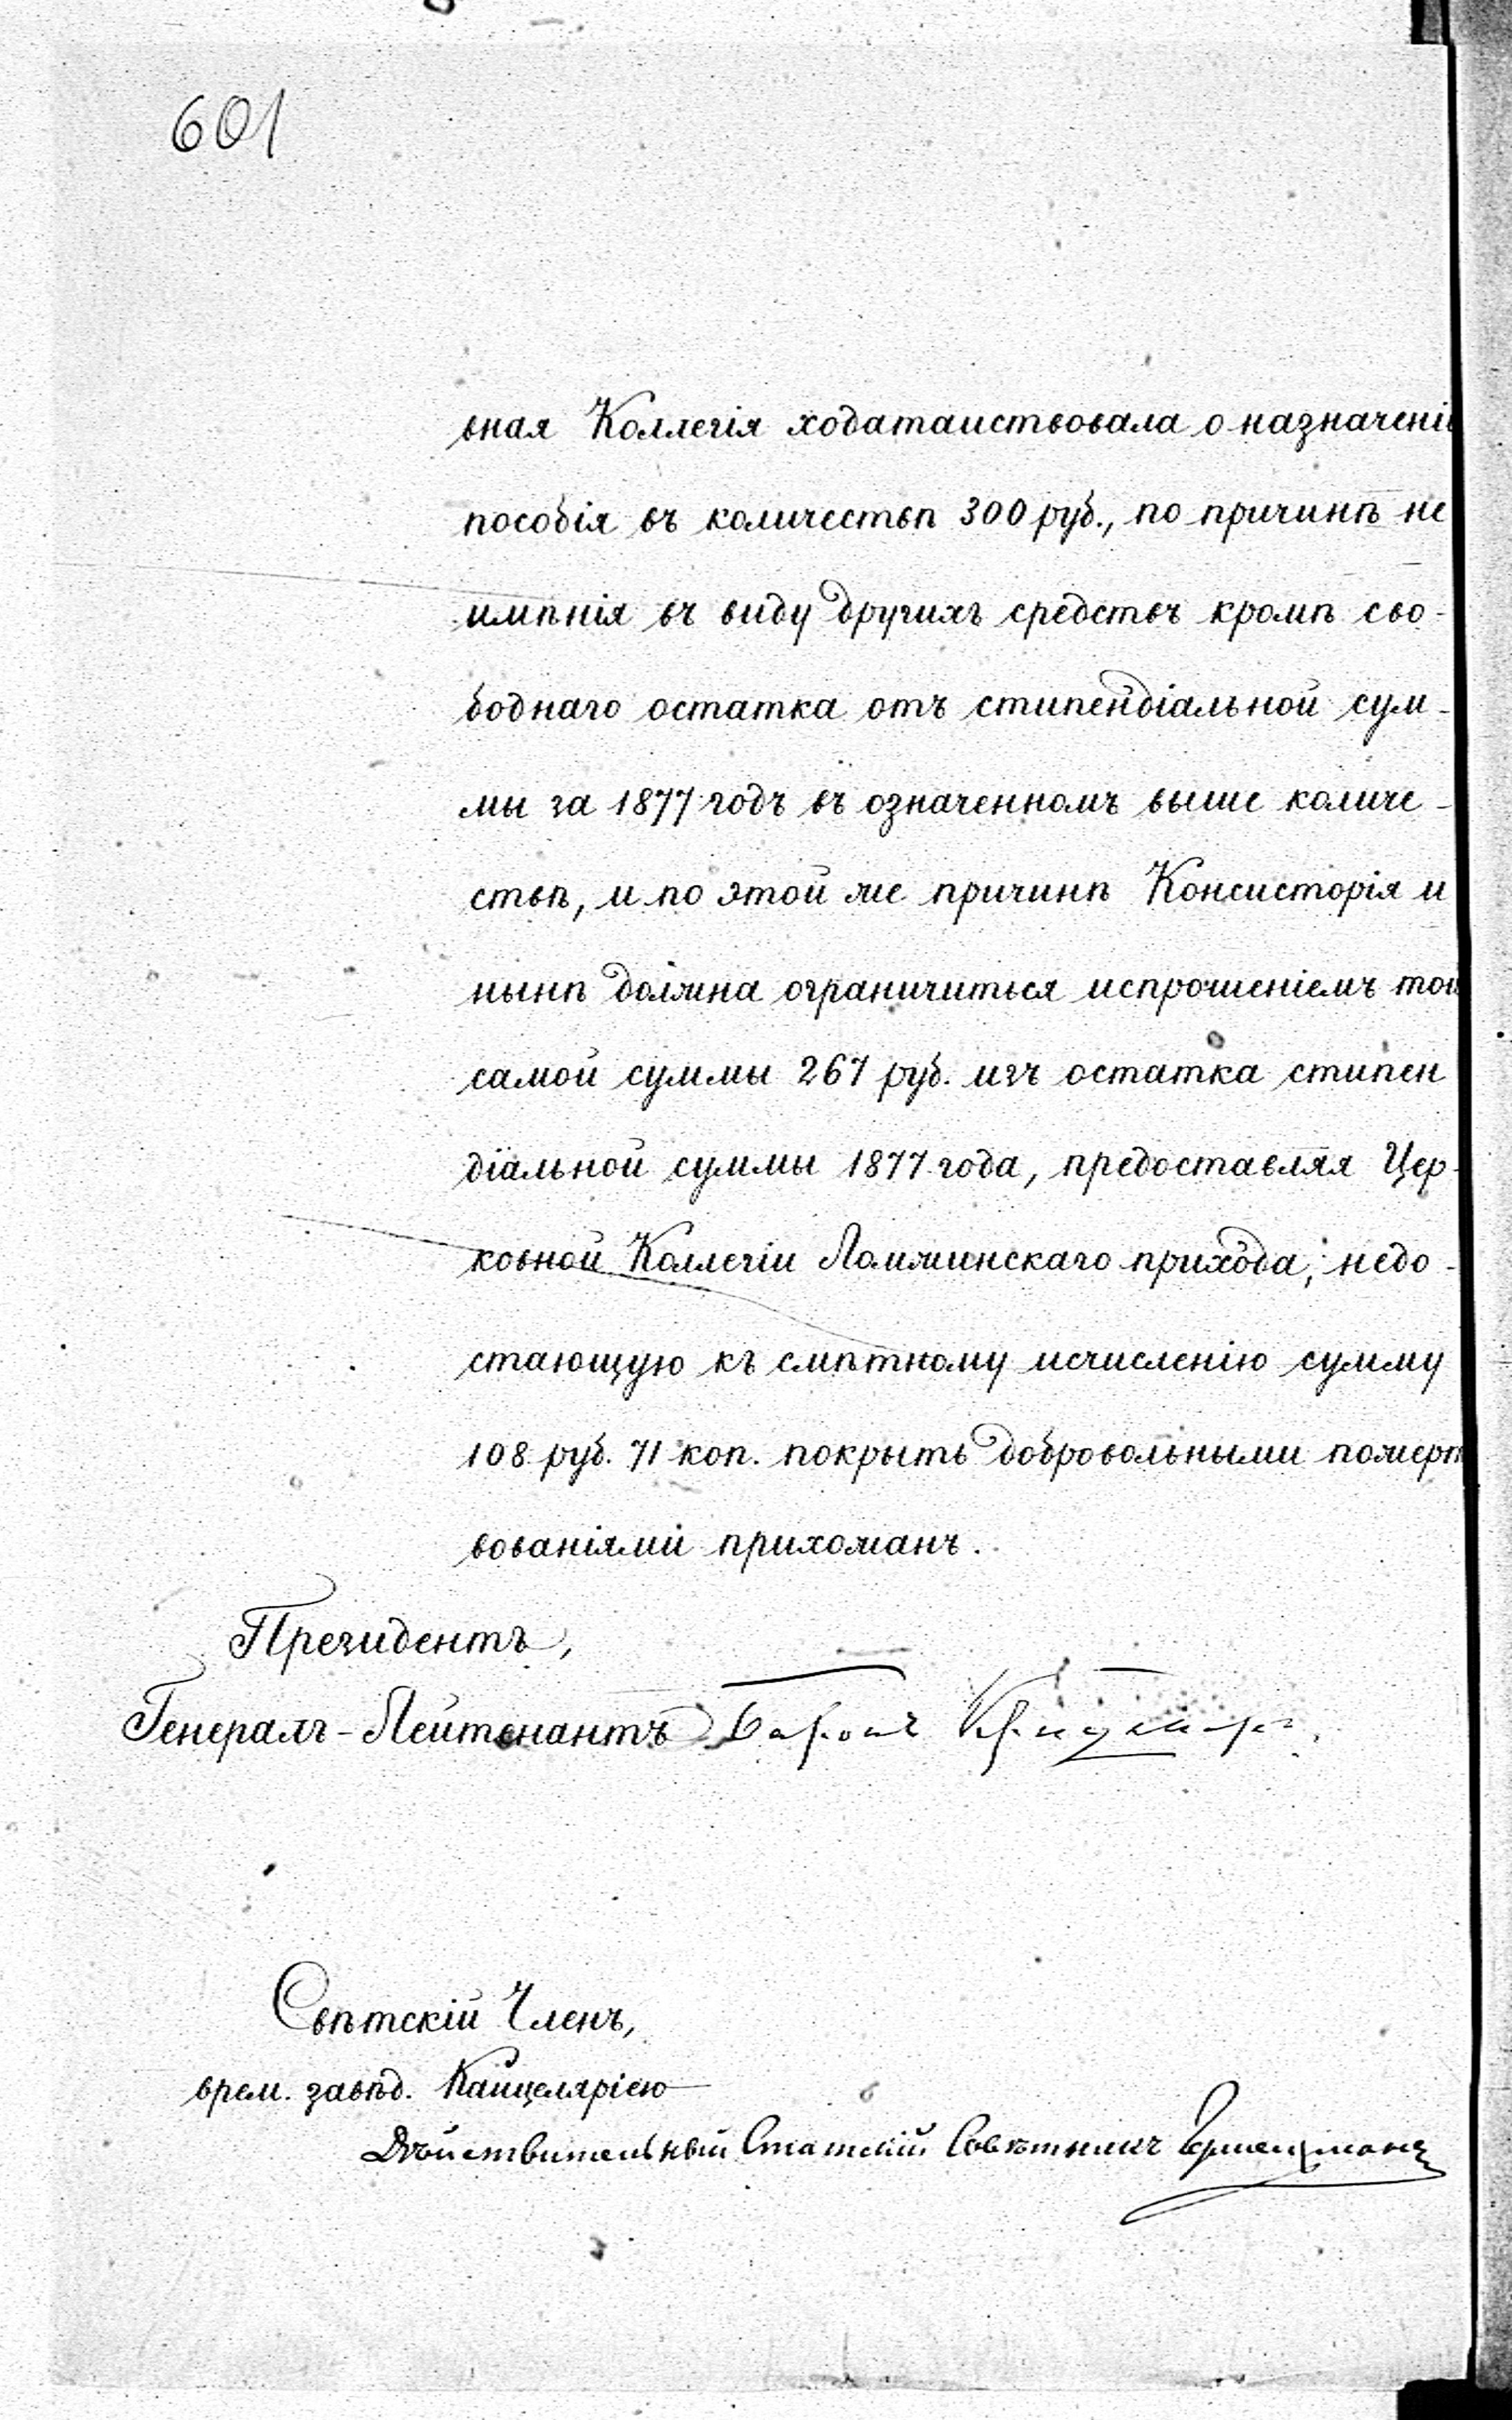 601
вная Коллегія ходатаиствовала о назначеніи
пособія въ количествѣ 300 руб., по причинѣ не
имѣнія въ виду другихъ средствъ кромѣ сво-
боднаго остатка отъ стипендіальной сум-
мы за 1877 годъ въ означенномъ выше количе-
ствѣ, и по этой же причинѣ Консисторія и
нынѣ должна ограничиться испрошеніемъ той
самой суммы 267 руб. изъ остатка стипен
діальной суммы 1877 года, предоставляя Цер-
ковной Коллегіи Ломжинскаго прихода, недо-
стающую къ смѣтному исчисленію сумму
108 руб. 71 коп. покрыть добровольными пожерт
вованіями прихожанъ.
Президентъ,
Генералъ-Лейтенантъ Баронъ
Свѣтскій Членъ,
врем. завѣд. Канцеляріею
Дѣйствительный Статскій Совѣтникъ